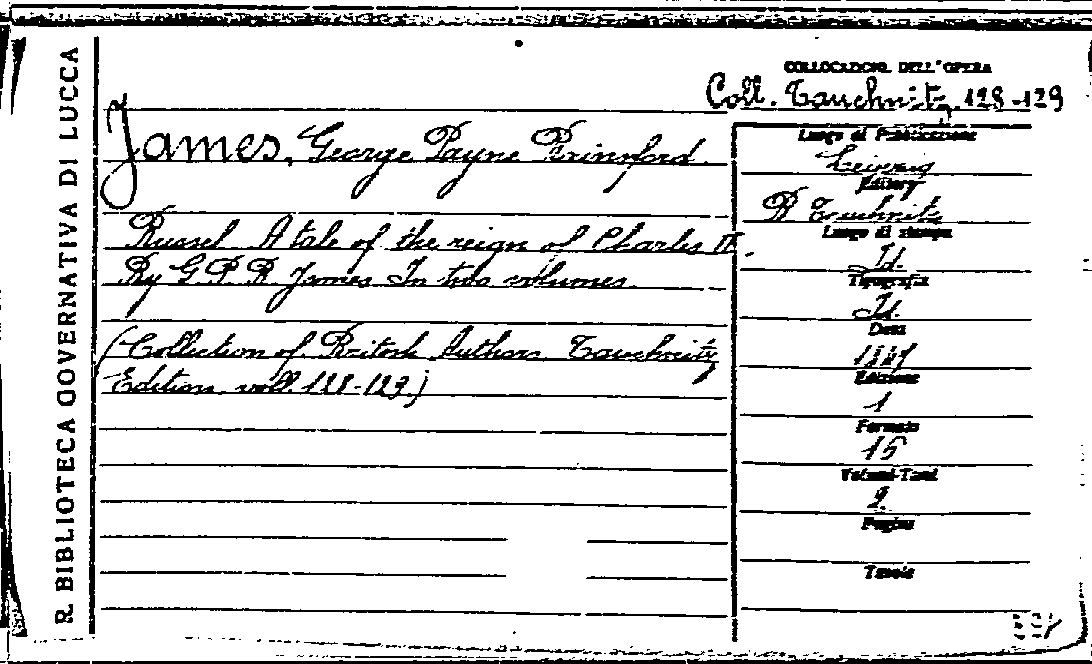 R. BIBLIOTECA GOVERNATIVA DI LUCCA
COLLOCAZIONE DELL'OPERA
Coll. Tauchnitz, 128-129
James, George Payne Rainsford
Russel A tale of the reign of Charles II.
By G. P. R. James In two volumes.
(Collection of British Authors Tauchnitz
Edition voll. 128-129)
Luogo di Pubblicazione
Leipzig
Editore
B Tauchnitz
Luogo di stampa
Id.
Tipografia
Id.
Data
Edizione
1
Formato
16
Volumi-Tomi
2
Pagine
Tavole